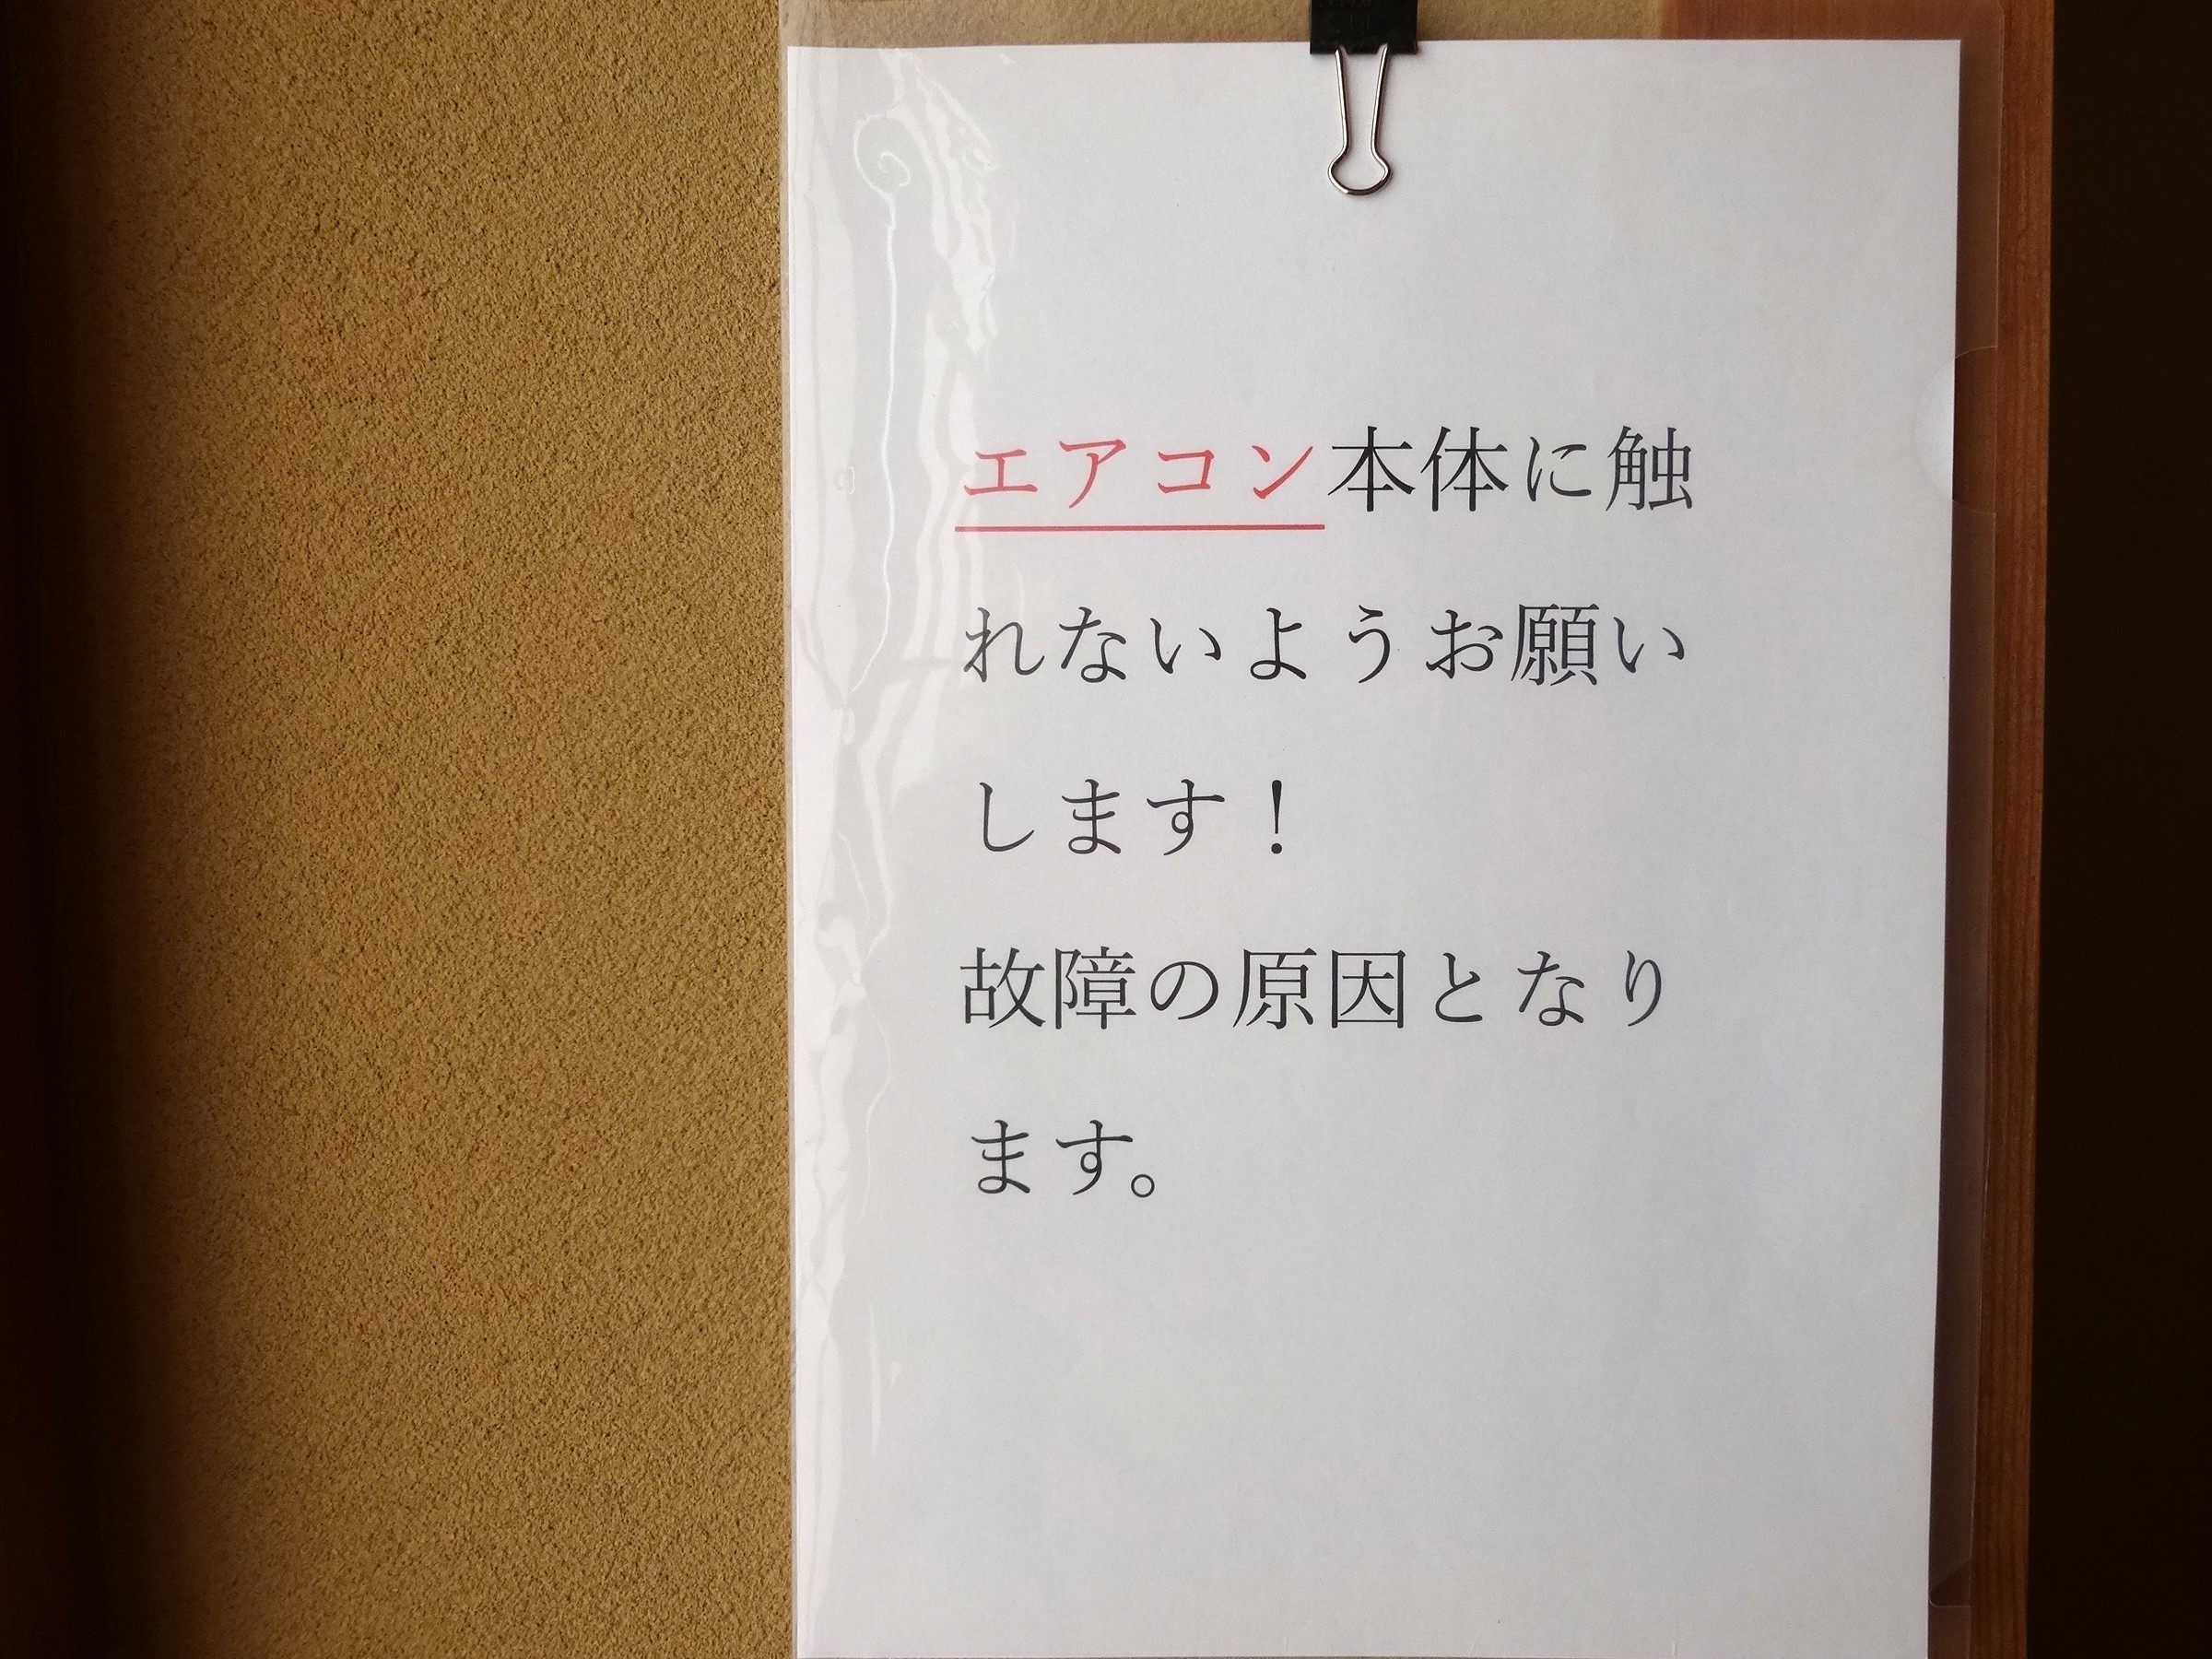 エアコン本体に触
れないようお願い
します！
故障の原因となり
ます。